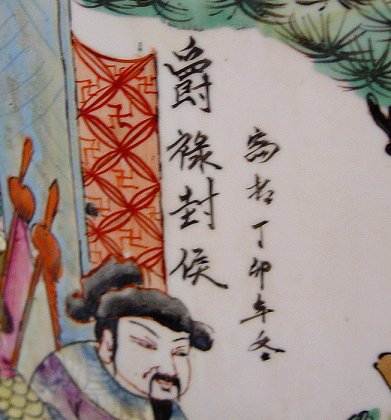 爵祿封侯
寫於丁卯年冬